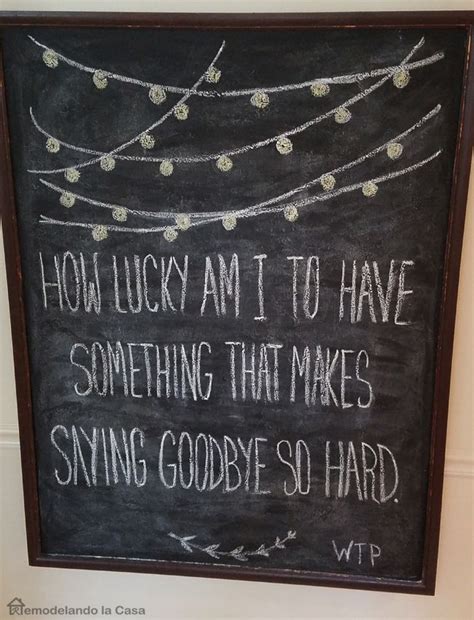 HOW LUCKY AM I TO HAVE
SOMETHING THAT MAKES
SAYING GOODBYE SO HARD.
WTP
Remodelando la Casa